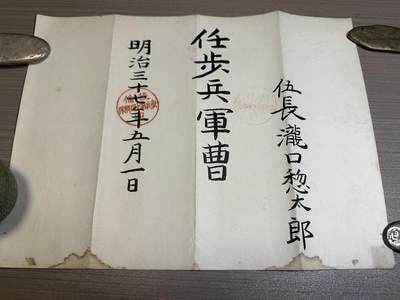 伍長瀧口惣太郎
任歩兵軍曹
明治三十七年五月一日